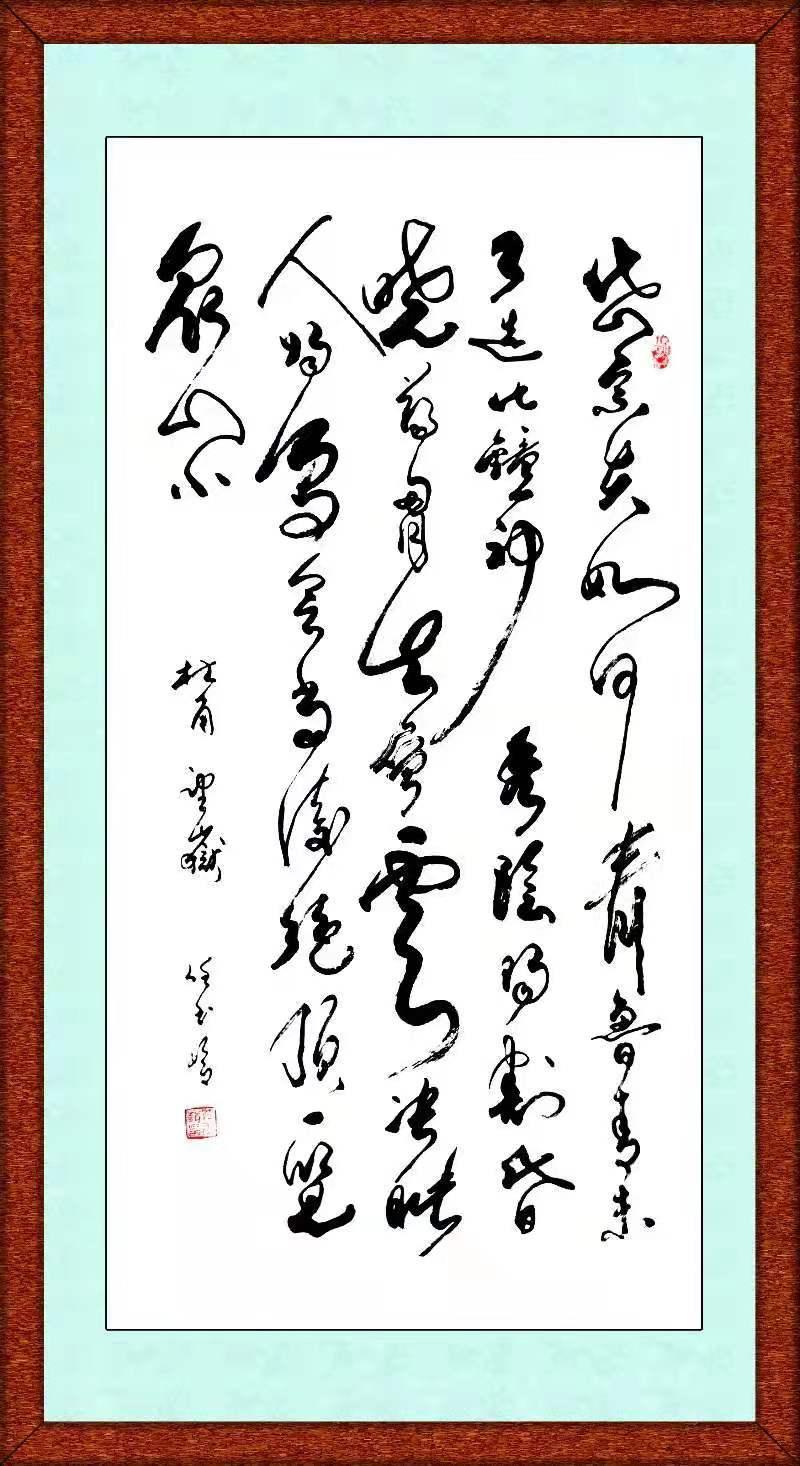 岱宗夫如何齊魯青未
了造化鐘神秀陰陽割昏
曉蕩胷生層雲決眦
入歸鳥會當凌絕頂一覽
眾山小
杜甫望嶽 任玉岭